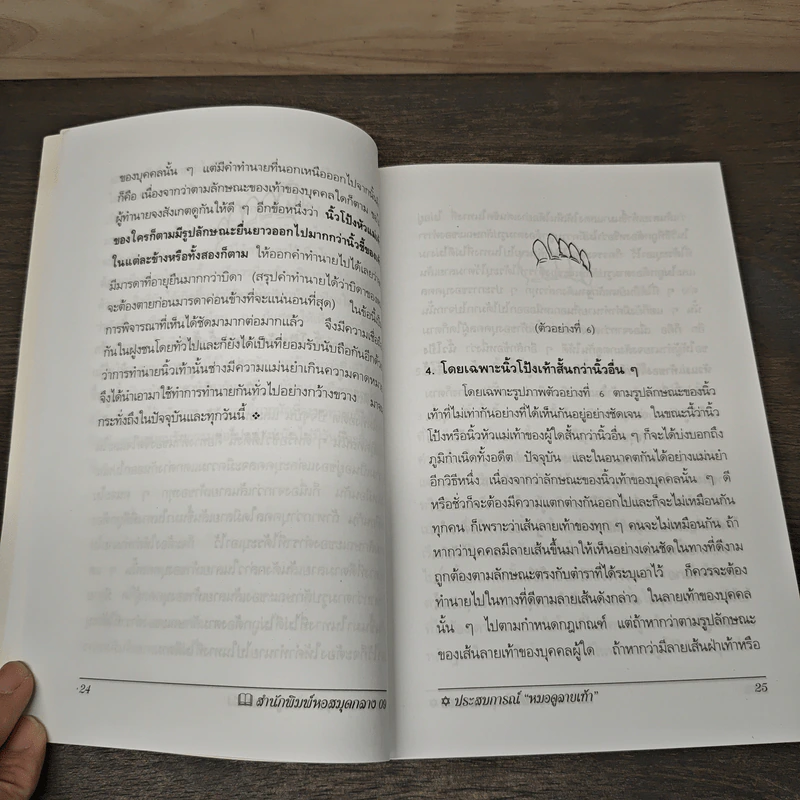 ของบุคคลนั้น ๆ แต่มีคำทำนายที่นอกเหนือออกไปจาก
ก็คือ เนื่องจากว่าตามลักษณะของเท้าของบุคคลใดก็ตาม
ผู้ทำนายจงสังเกตดูกันให้ดี ๆ อีกข้อหนึ่งว่า นิ้วโป้งหัวแม่
ของใครก็ตามมีรูปลักษณะยื่นยาวออกไปมากกว่านิ้วชี้ของ
ในแต่ละข้างหรือทั้งสองก็ตาม ให้ออกคำทำนายไปได้เลย
มีมารดาที่อายุยืนมากกว่าบิดา (สรุปคำทำนายได้ว่าบิดาของ
จะต้องตายก่อนมารดาค่อนข้างที่จะแน่นอนที่สุด) ในข้อนี้
การพิจารณาที่เห็นได้ชัดมามากต่อมากแล้ว จึงมีความเชื่อ
กันในฝูงชนโดยทั่วไปและก็ยังได้เป็นที่ยอมรับนับถือกันอีกด้วย
ว่าการทำนายนิ้วเท้านั้นช่างมีความแม่นยำเกินความคาดหมาย
จึงได้นำเอามาใช้ทำการทำนายกันทั่วไปอย่างกว้างขวาง
กระทั่งถึงในปัจจุบันและทุกวันนี้ ❖
24
สำนักพิมพ์หอสมุดกลาง 09
(ตัวอย่างที่ ๖)
4. โดยเฉพาะนิ้วโป้งเท้าสั้นกว่านิ้วอื่น ๆ
โดยเฉพาะรูปภาพตัวอย่างที่ ๖ ตามรูปลักษณะของนิ้ว
เท้าที่ไม่เท่ากันอย่างที่ได้เห็นกันอยู่อย่างชัดเจน ในขณะนี้ว่านิ้ว
โป้งหรือนิ้วหัวแม่เท้าของผู้ใดสั้นกว่านิ้วอื่น ๆ ก็จะได้บ่งบอกถึง
ภูมิกำเนิดทั้งอดีต ปัจจุบัน และในอนาคตกันได้อย่างแม่นยำ
อีกวิธีหนึ่ง เนื่องจากว่าลักษณะของนิ้วเท้าของบุคคลนั้น ๆ ดี
หรือชั่วก็จะต้องมีความแตกต่างกันออกไปและก็จะไม่เหมือนกัน
ทุกคน ก็เพราะว่าเส้นลายเท้าของทุก ๆ คนจะไม่เหมือนกัน ถ้า
หากว่าบุคคลมีลายเส้นขึ้นมาให้เห็นอย่างเด่นชัดในทางที่ดีงาม
ถูกต้องตามลักษณะตรงกับตำราที่ได้ระบุเอาไว้ ก็ควรจะต้อง
ทำนายไปในทางที่ดีตามลายเส้นดังกล่าว ในลายเท้าของบุคคล
นั้น ๆ ไปตามกำหนดกฎเกณฑ์ แต่ถ้าหากว่าตามรูปลักษณะ
ของเส้นลายเท้าของบุคคลผู้ใด ถ้าหากว่ามีลายเส้นฝ่าเท้าหรือ
ประสบการณ์ "หมอดูลายเท้า"
25